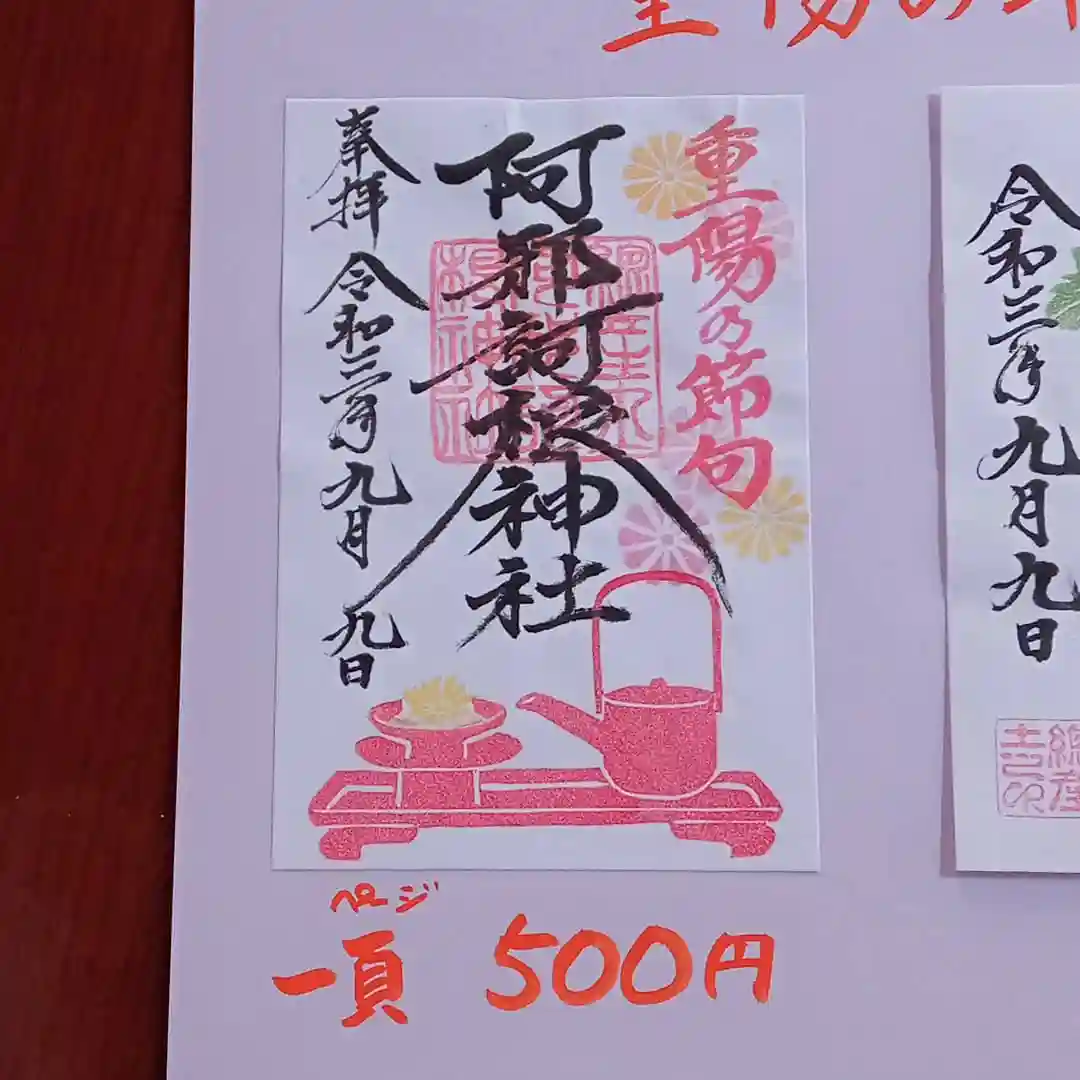 重陽の
重陽の節句
阿邪訶根神社
奉拝 令和三年九月九日
令和三年九月九日
ページ
一頁 500円